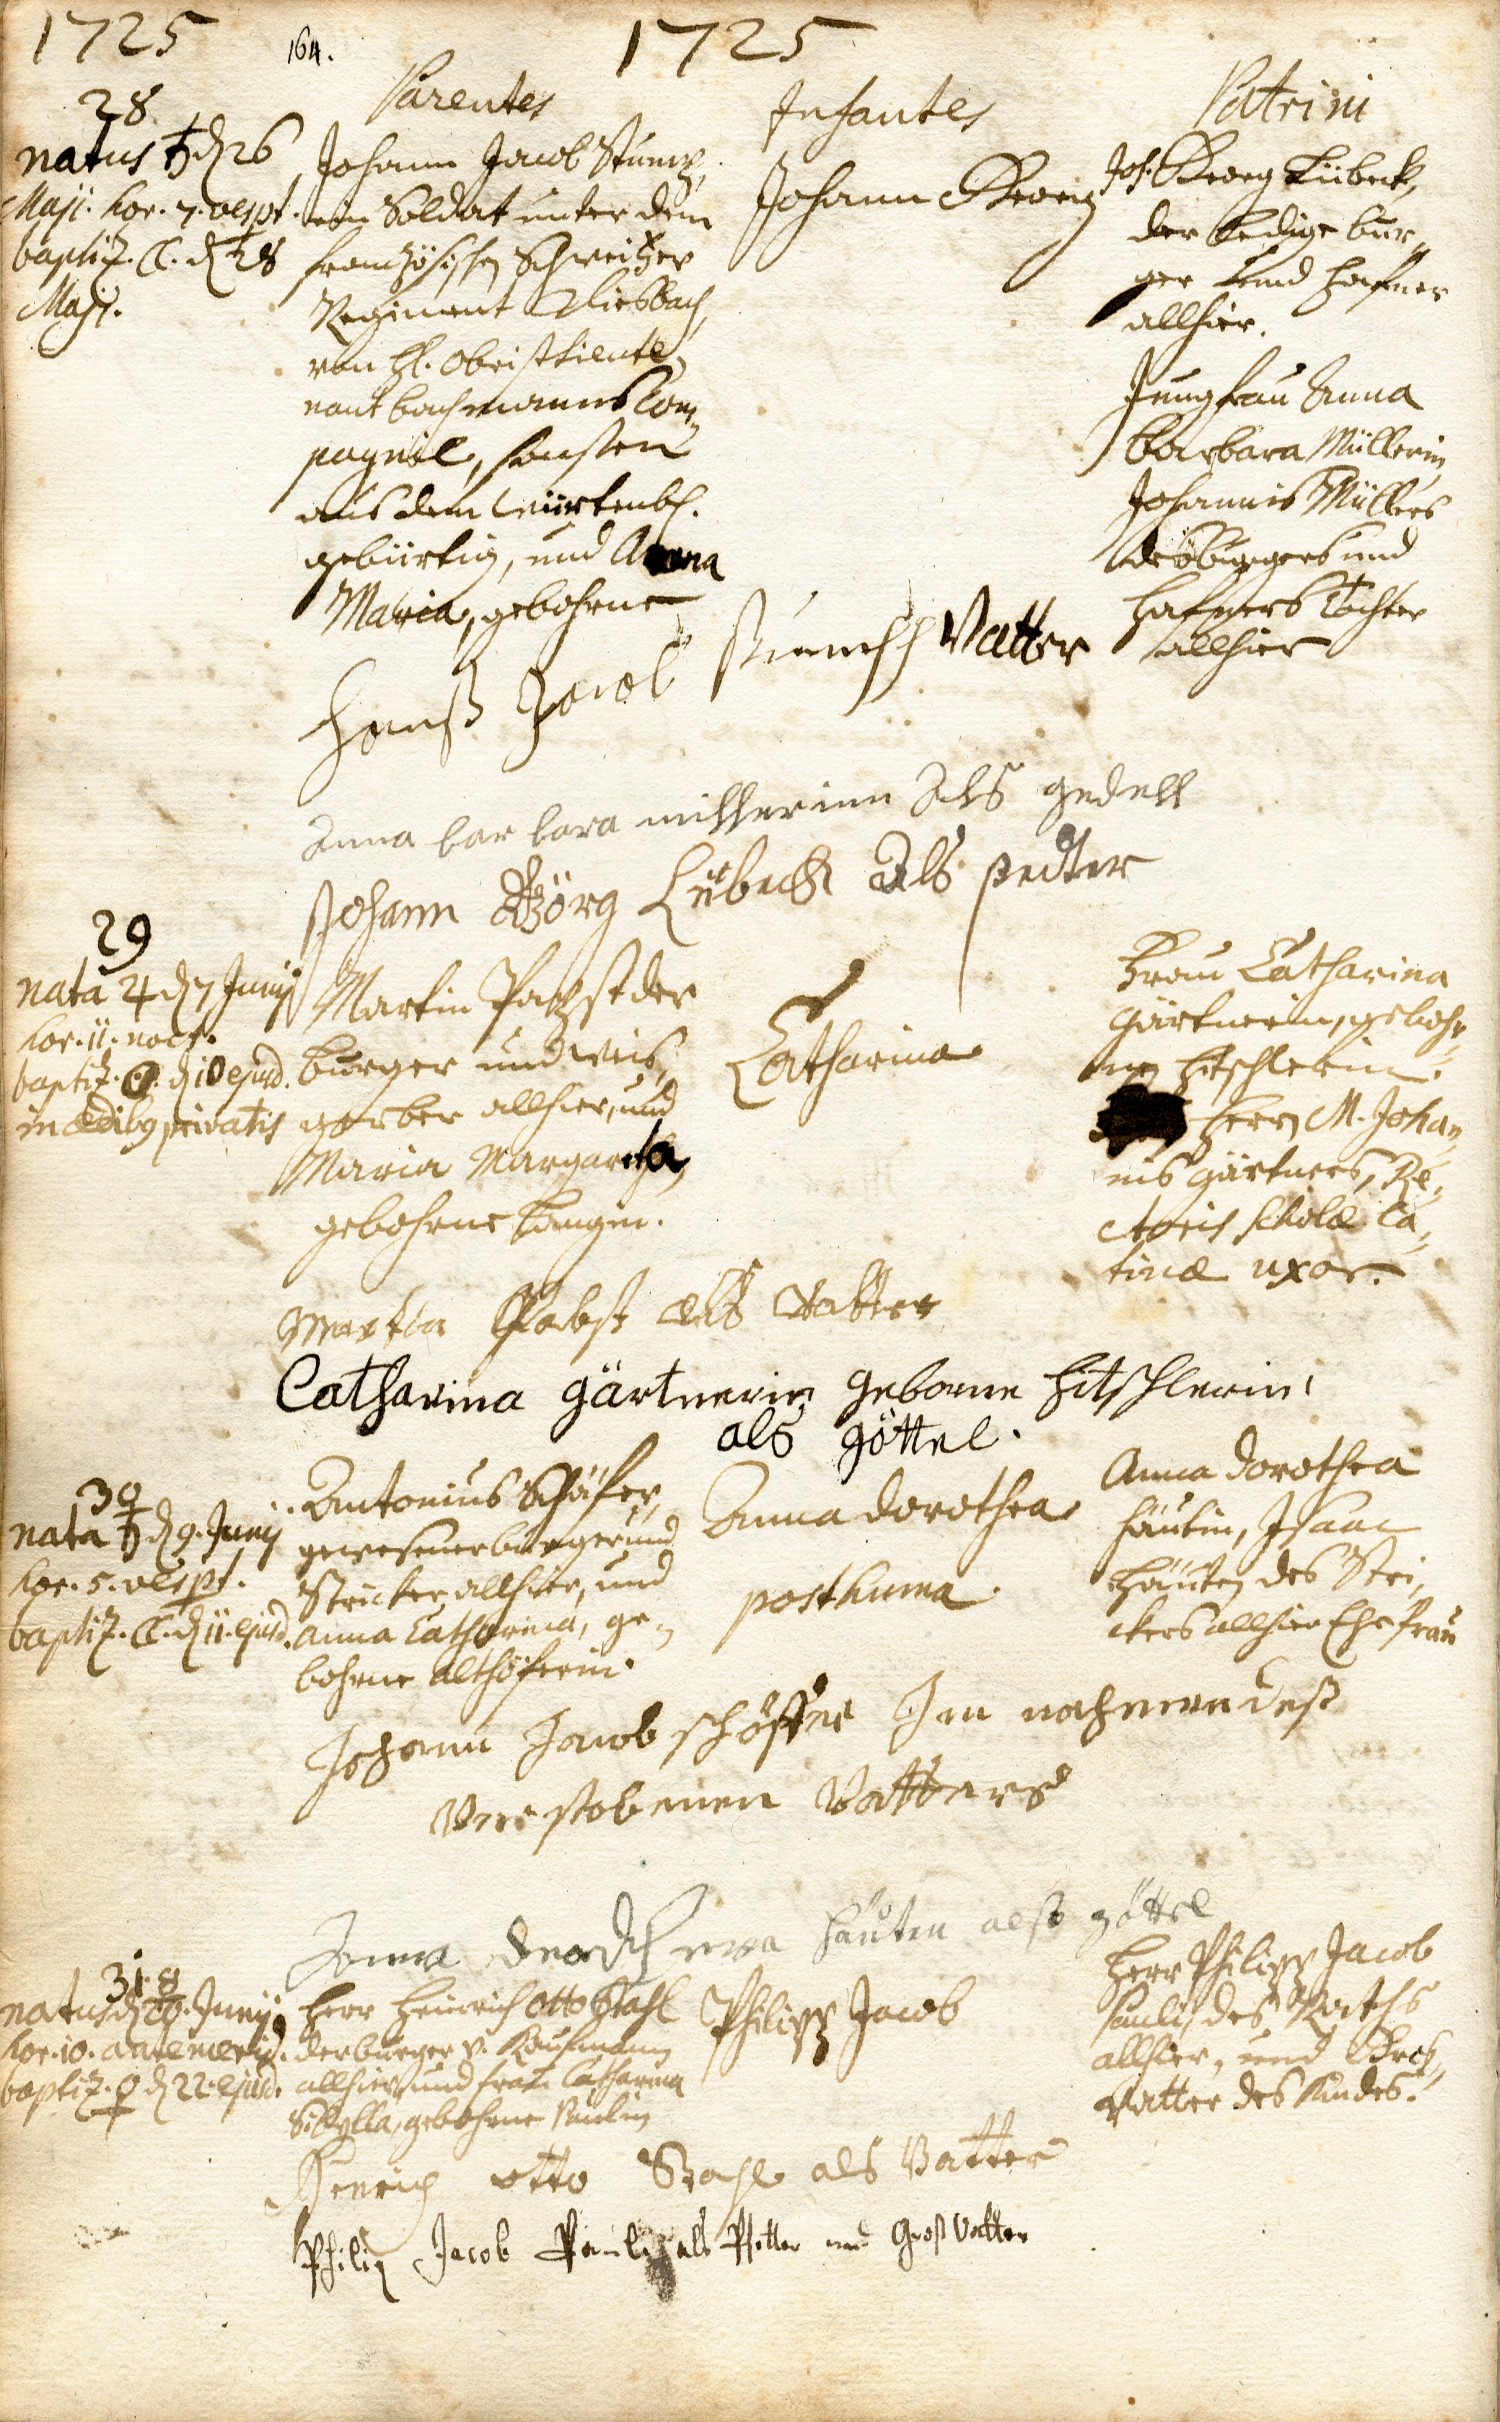 1725 164. 1725
Parentes Infantes Patrini
28
natus ♄ d 26
Maji. hor. 7. vespt.
baptiz. ☾. d 28
Maji.
Johann Jacob Stumpf,
ein Soldat unter dem
französischen Schweitzer
Regiment Diesbach,
von H. Obristlieute„
nant Bachmanns Com„
pagnie, sonsten
aus dem Würtenb.
gebürtig, und Anna
Maria, gebohrne
Johann Georg
Joh. Georg Lübeck,
der ledige bur„
ger und Hafner
allhier.
Jungfrau Anna
Barbara Müllerin
Johannis Müllers
des burgers und
Hafners Tochter
allhier
Hanß Jacob Stumpf Vatter
Anna barbara millerinn Als gedell
Johann Görg Lübeck Als petter
29
nata ♃ d 7 Junij
hor. 11. noct.
baptiz. ☉. d 10 ejusd.
in ædibg privatis
Martin Pabst der
burger und weis„
gerber allhier, und
Maria Margaretha,
gebohrne Langin.
Catharina
Frau Catharina
Gärtnerin, gebohr„
ne Hitschlerin.
Herrn M. Johan„
nis Gärtners, Re„
ctoris scholæ La„
tinæ uxor.
Martin Pabst als Vatter
Catharina Gärtnerin geborne Hitschlerin
als göttel.
30
nata ♄ d 9. Junij
hor. 5. vespt.
baptiz. ☾. d 11. ejusd.
Antonius Schäfer,
gewesener burger und
Stricker allhier, und
Anna Catharina, ge„
bohrne Althöferin.
Anna Dorothea
posthuma.
Anna Dorothea
Häutin, Isaac
Häuten des Stri„
ckers allhier Ehefrau
Johann Jacob schöffer Im nahmen deß
Verstobenen Vatters
Anna häuten alß göttel
31
natus d 20. Junij
hor. 10. antemerid.
baptiz. ♀ d 22. ejusd.
Herr Heinrich Otto Stahl
der burger v. Kaufmann
allhier, und frau Catharina
Sibylla, gebohrne Paulin
Philipp Jacob
Herr Philipp Jacob
Pauli, des Raths
allhier, und Groß„
Vatter des Kindes.
Henrich otto Stahl als Vatter
Philip Jacob Pauli als Pfetter und Groß Vatter